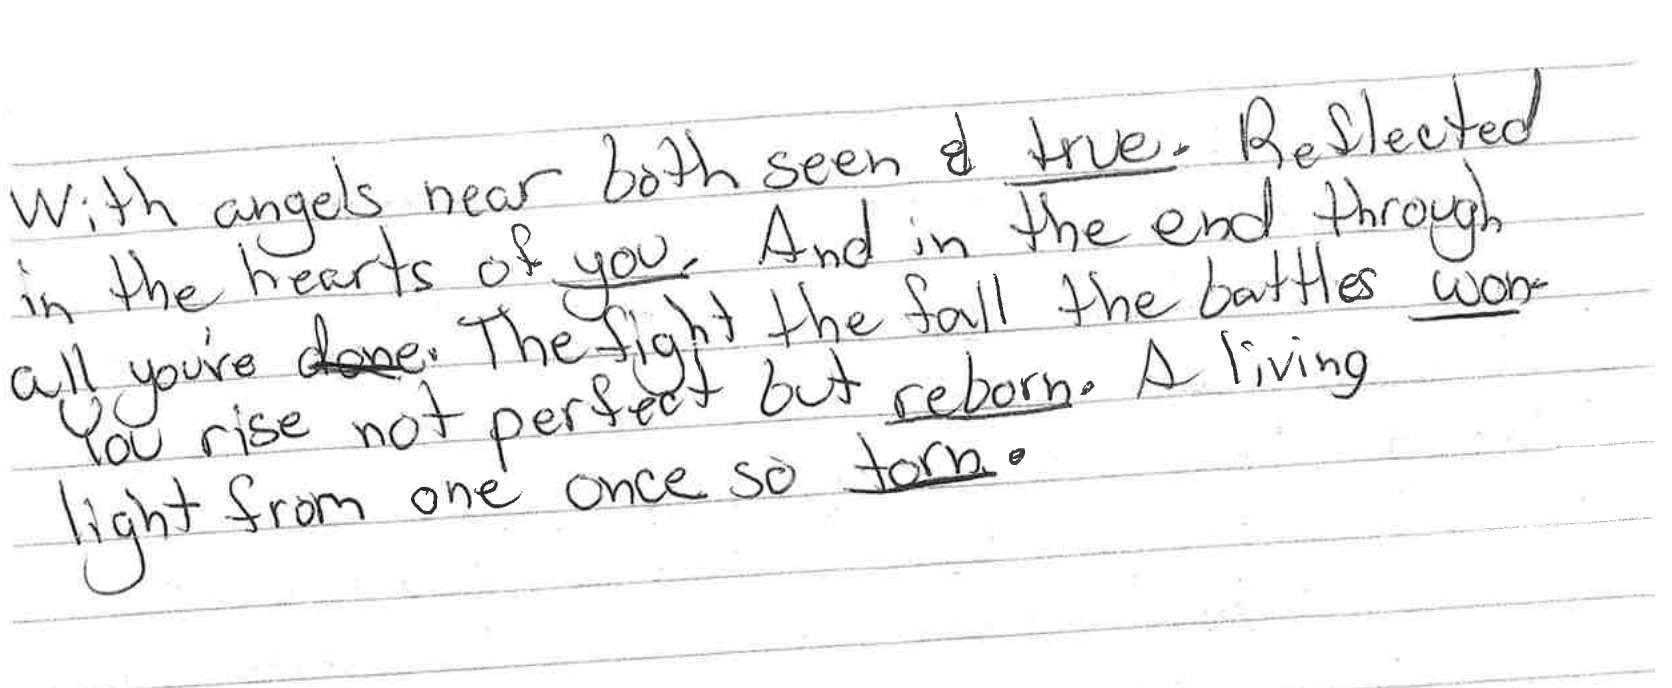 With angels near both seen & true. Reflected
in the hearts of you. And in the end through
all you're done. The fight the fall the battles won-
You rise not perfect but reborn. A living
light from one once so torn.